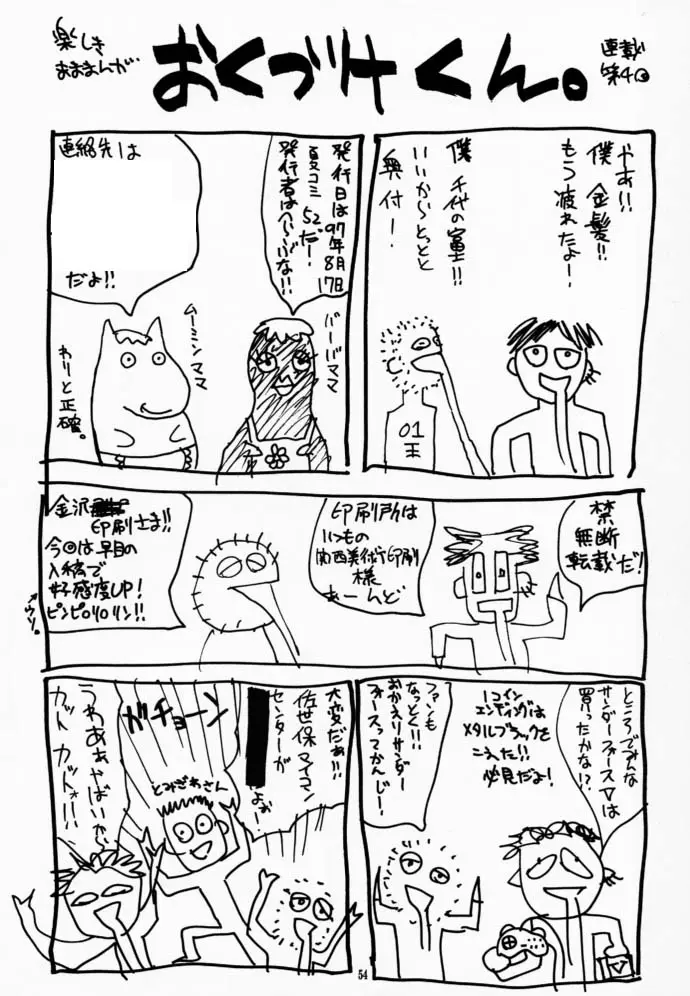 楽しき
おままんが
おくづけくん。
連載
第4回
やあ!!
僕 金髪!!
もう疲れたよー!
僕 千代の富士!!
いいから、とっとと
奥付ー!
01
王
発行日は97年8月17日
夏コミ 52だー!
発行者は
な!!
バーバママ
連絡先は
だよ!!
ムーミンママ
わりと正確。
禁
無断
転載だ!
印刷所は
いつもの
関西美術印刷
様
あーんど
金沢
印刷さま!!
今回は早目の
入稿で
好感度UP!
ピンピロリロリン!!
↗ウソ。
ところでみんな
サンダーフォースⅤは
買ったかな!?
1コイン
エンディングは
メタルブラックを
こえた!!
必見だよ!
ファンも
なっとく!!
おかえりサンダー
フォースってかんじー!
大変だぁ!!!
佐世保マイコン
センターが
よぉ
ガチョーン
とみざわさん
うわあぁやばいから
カット カットォ!!!
54